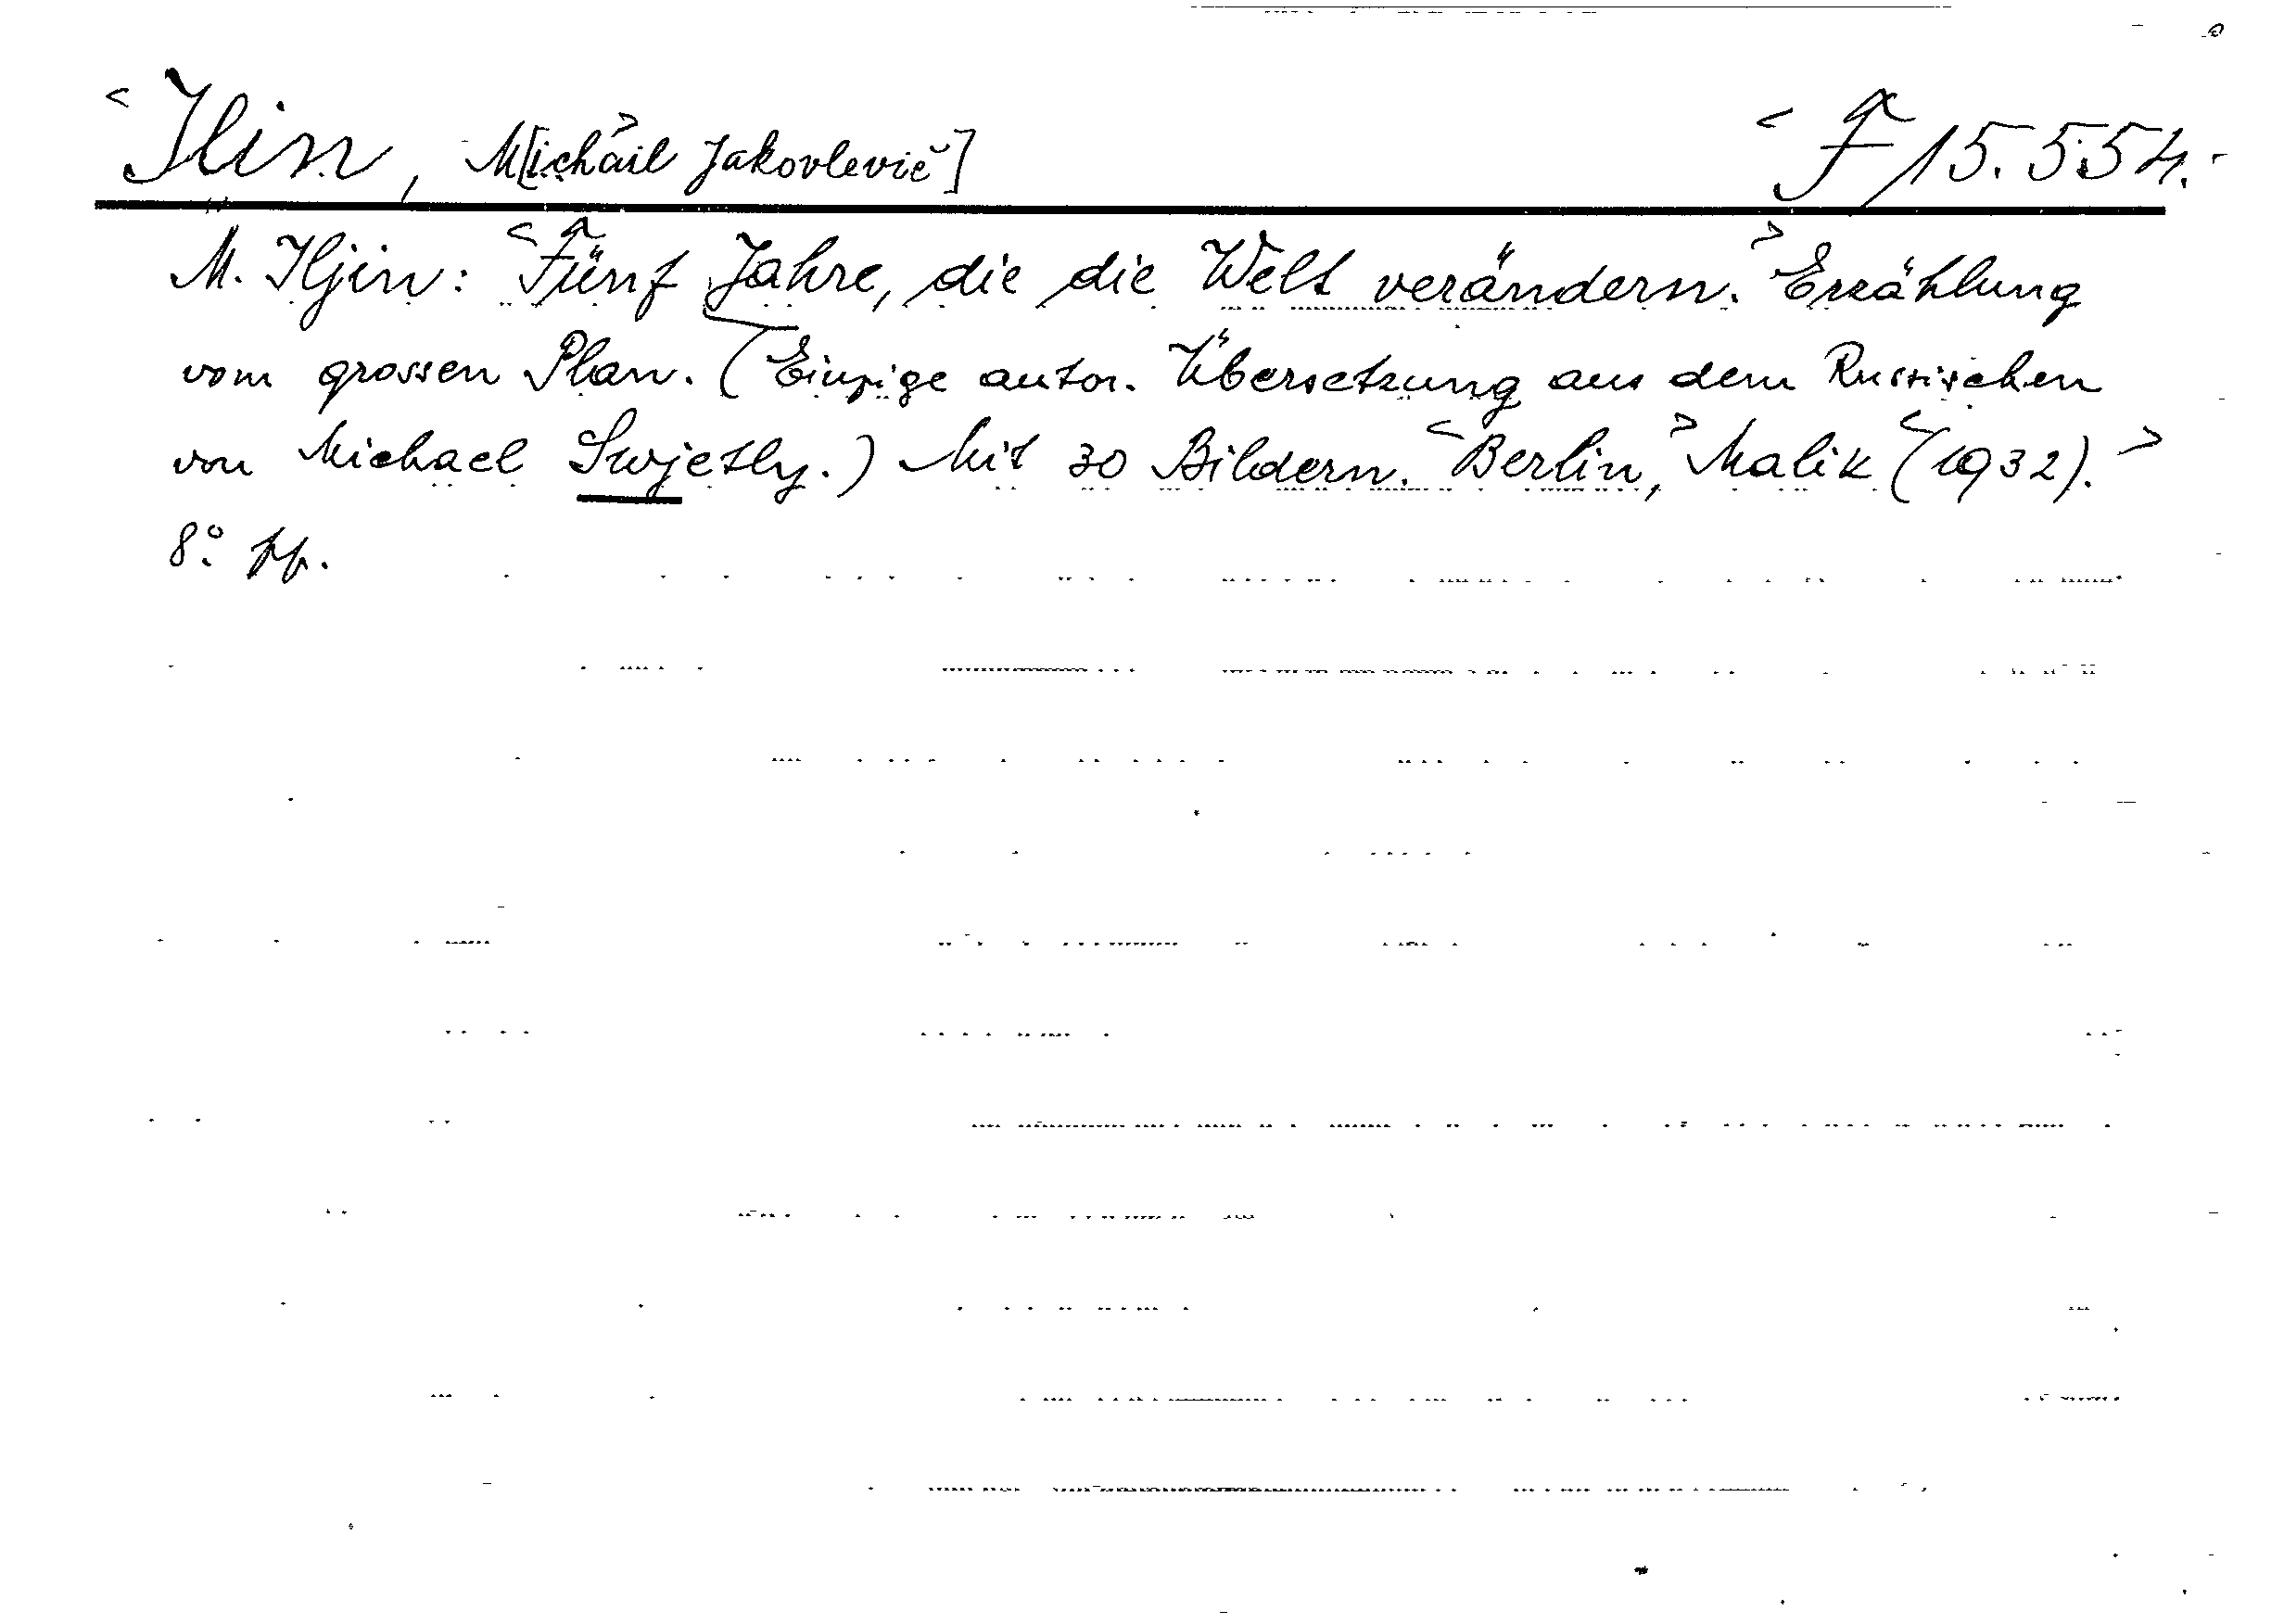 Ilin, M[ichail Jakovlevič] F 15.554.
M. Iljin: Fünf Jahre, die die Welt verändern. Erzählung
vom grossen Plan. (Einzige autor. Übersetzung aus dem Russischen
von Michael Swjetly.) Mit 30 Bildern. Berlin, Malik (1932).
8°. pp.